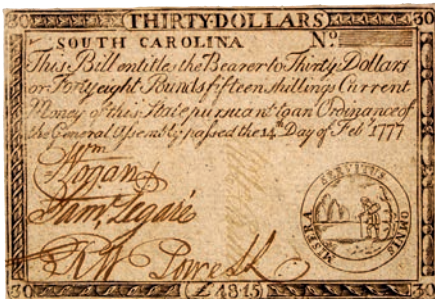 30 THIRTY·DOLLARS 30
SOUTH CAROLINA No.
This Bill entitles the Bearer to Thirty Dollars
or Forty eight Pounds fifteen shillings Current
Money of this State pursuant to an Ordinance of
the General Assembly passed the 14th Day of Feb 1777
Wm
Logan
Saml Legaré
Powell
SERVITUS
OMNIS
MISERA
30 £48·15 30